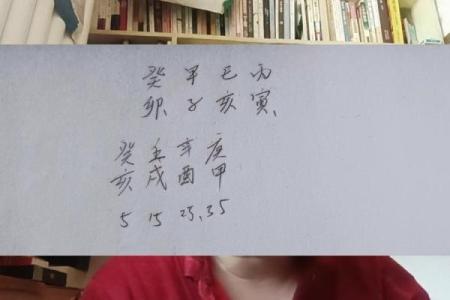 癸甲己丙
卯子亥寅、
癸壬辛庚
亥戌酉甲
5 15 25、35